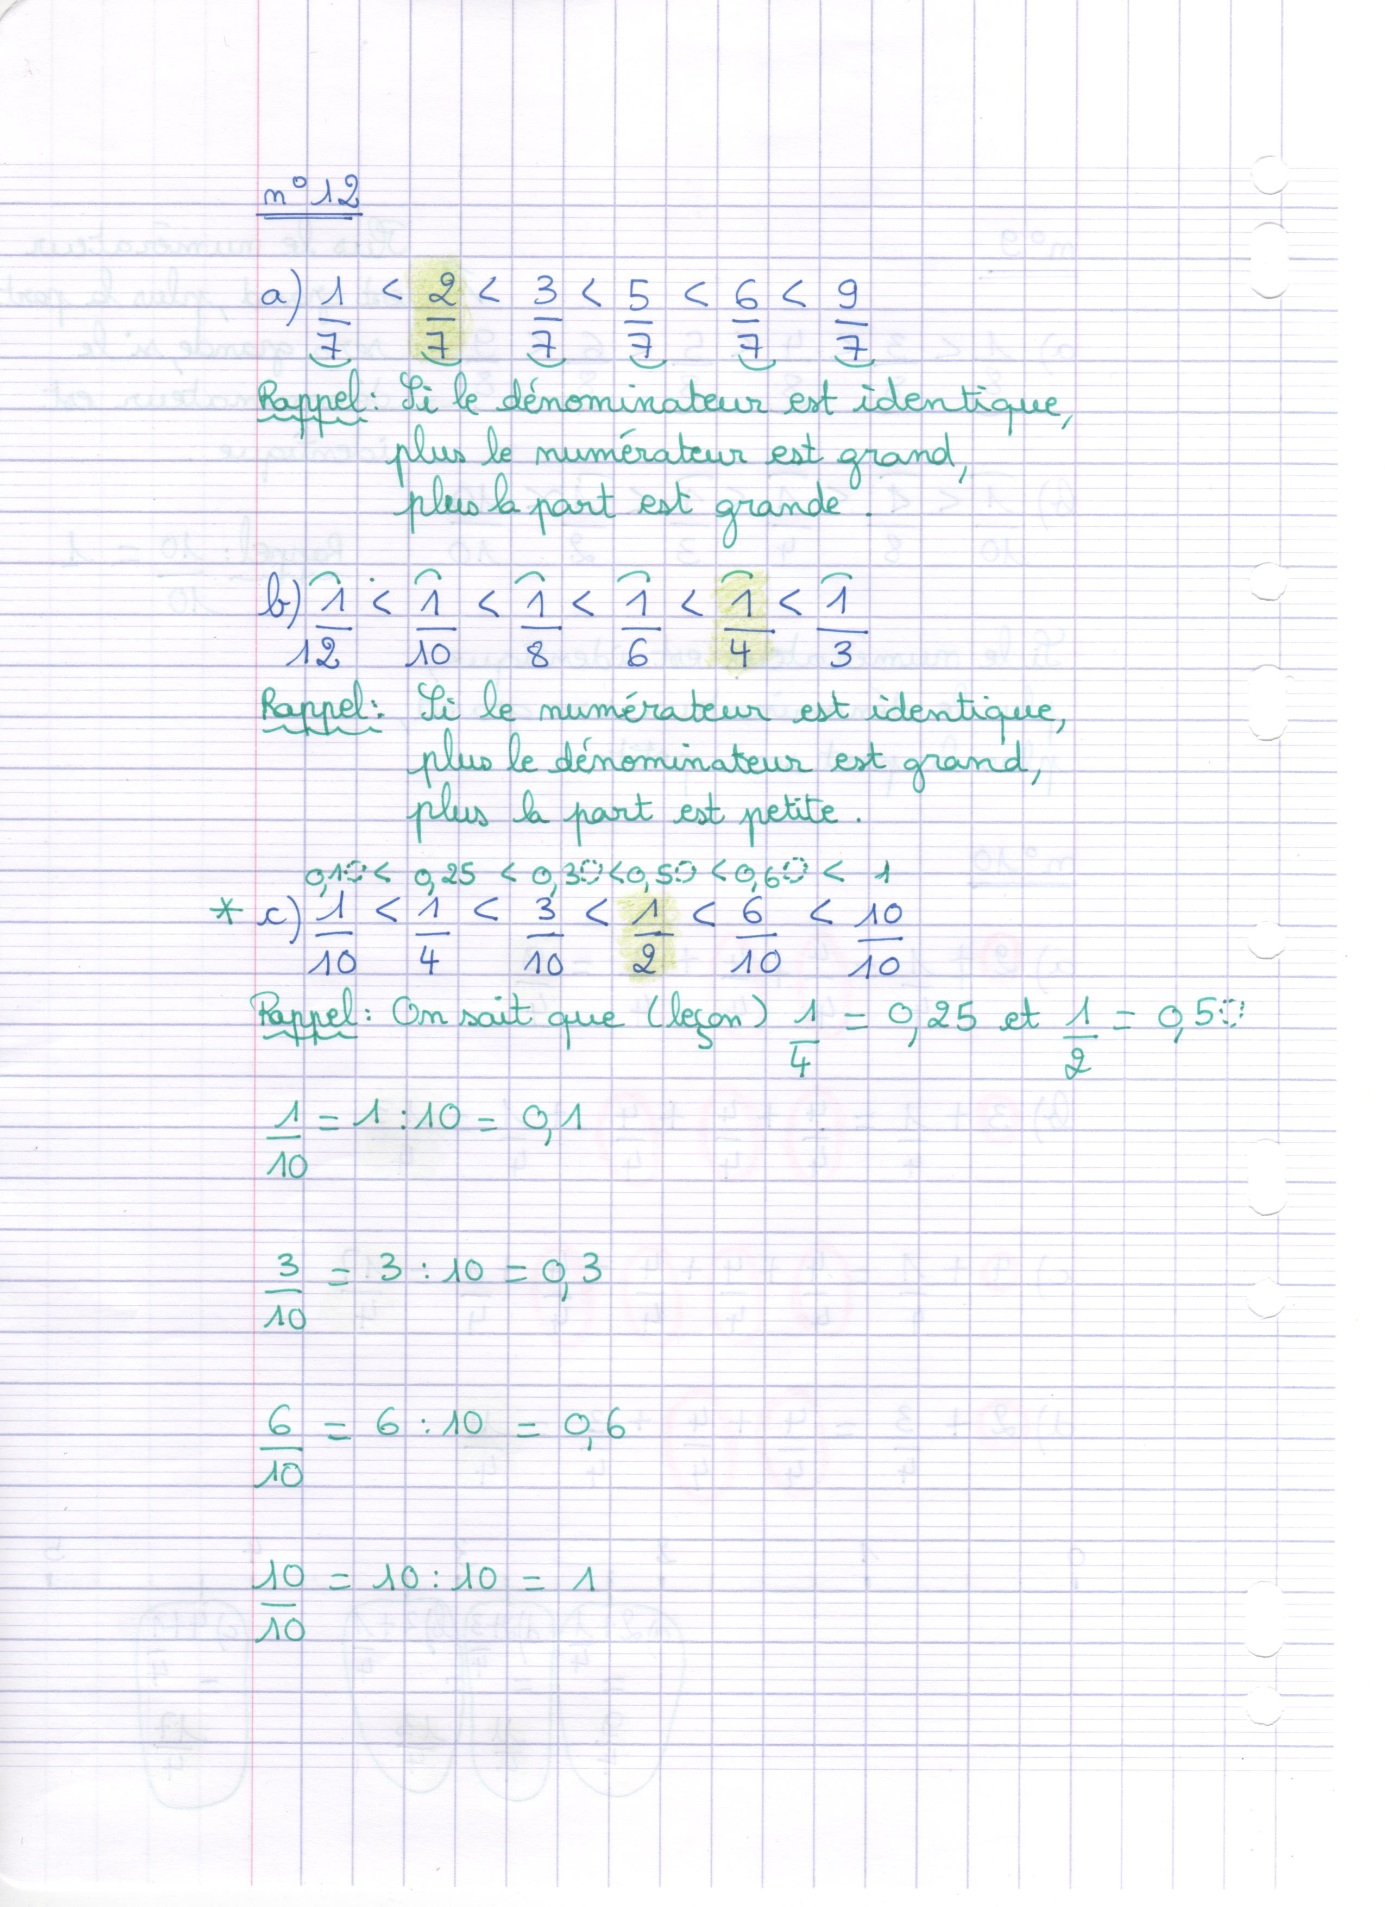 n° 12
a) 1/7 < 2/7 < 3/7 < 5/7 < 6/7 < 9/7
Rappel : Si le dénominateur est identique,
plus le numérateur est grand,
plus la part est grande.
b) 1/12 < 1/10 < 1/8 < 1/6 < 1/4 < 1/3
Rappel : Si le numérateur est identique,
plus le dénominateur est grand,
plus la part est petite.
0,10 < 0,25 < 0,30 < 0,50 < 0,60 < 1
* c) 1/10 < 1/4 < 3/10 < 1/2 < 6/10 < 10/10
Rappel : On sait que (leçon) 1/4 = 0,25 et 1/2 = 0,50
1/10 = 1 : 10 = 0,1
3/10 = 3 : 10 = 0,3
6/10 = 6 : 10 = 0,6
10/10 = 10 : 10 = 1